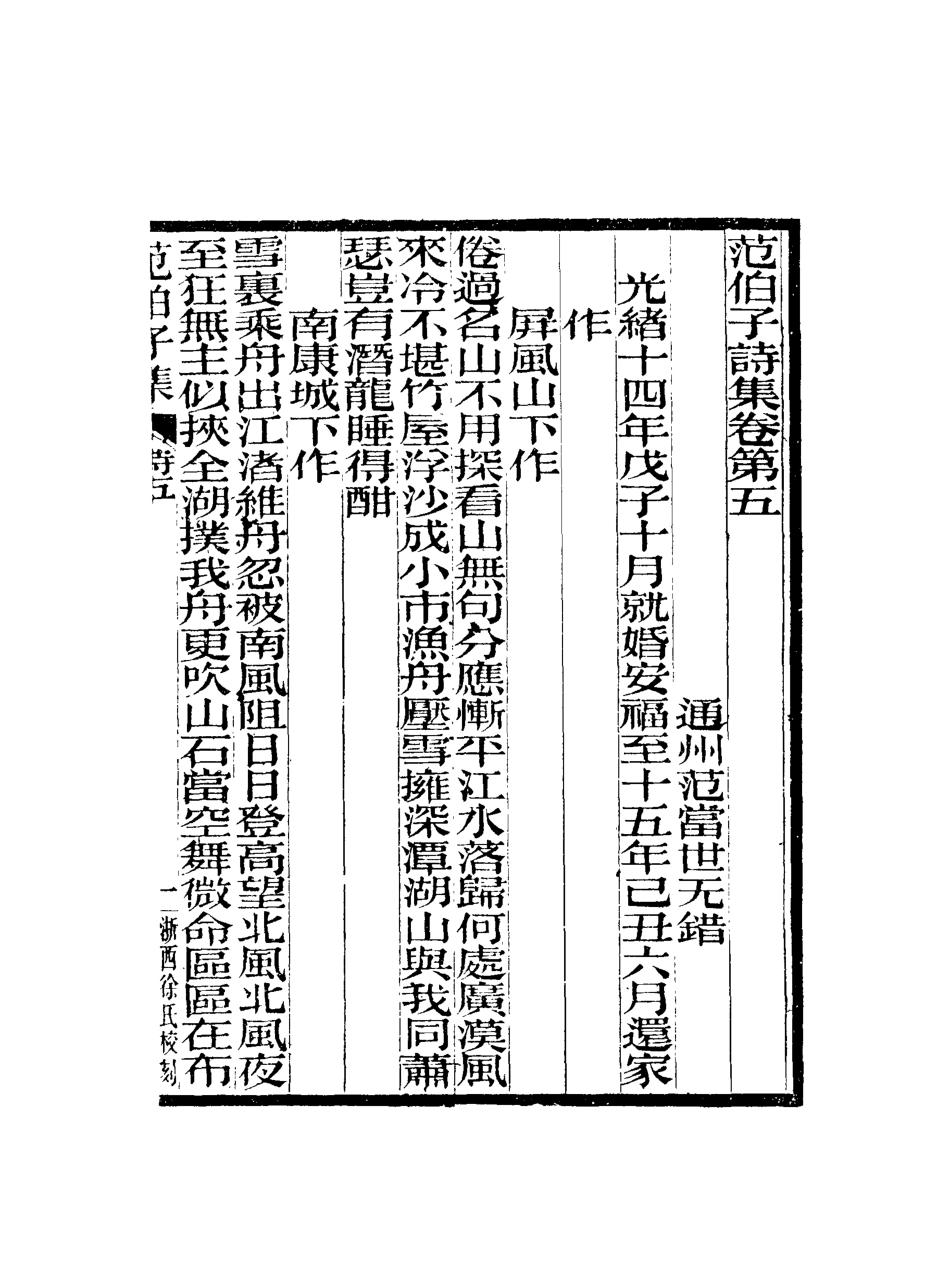 范伯子詩集卷第五
通州范當世无錯
光緒十四年戊子十月就婚安福至十五年己丑六月還家
作
屏風山下作
倦過名山不用探看山無句分應慚平江水落歸何處廣漠風
來冷不堪竹屋浮沙成小市漁舟壓雪擁深潭湖山與我同蕭
瑟豈有潛龍睡得酣
南康城下作
雪裏乘舟出江渚維舟忽被南風阻日日登高望北風北風夜
至狂無主似挾全湖撲我舟更吹山石當空舞微命區區在布
范伯子集 詩五 一 浙西徐氏校刻